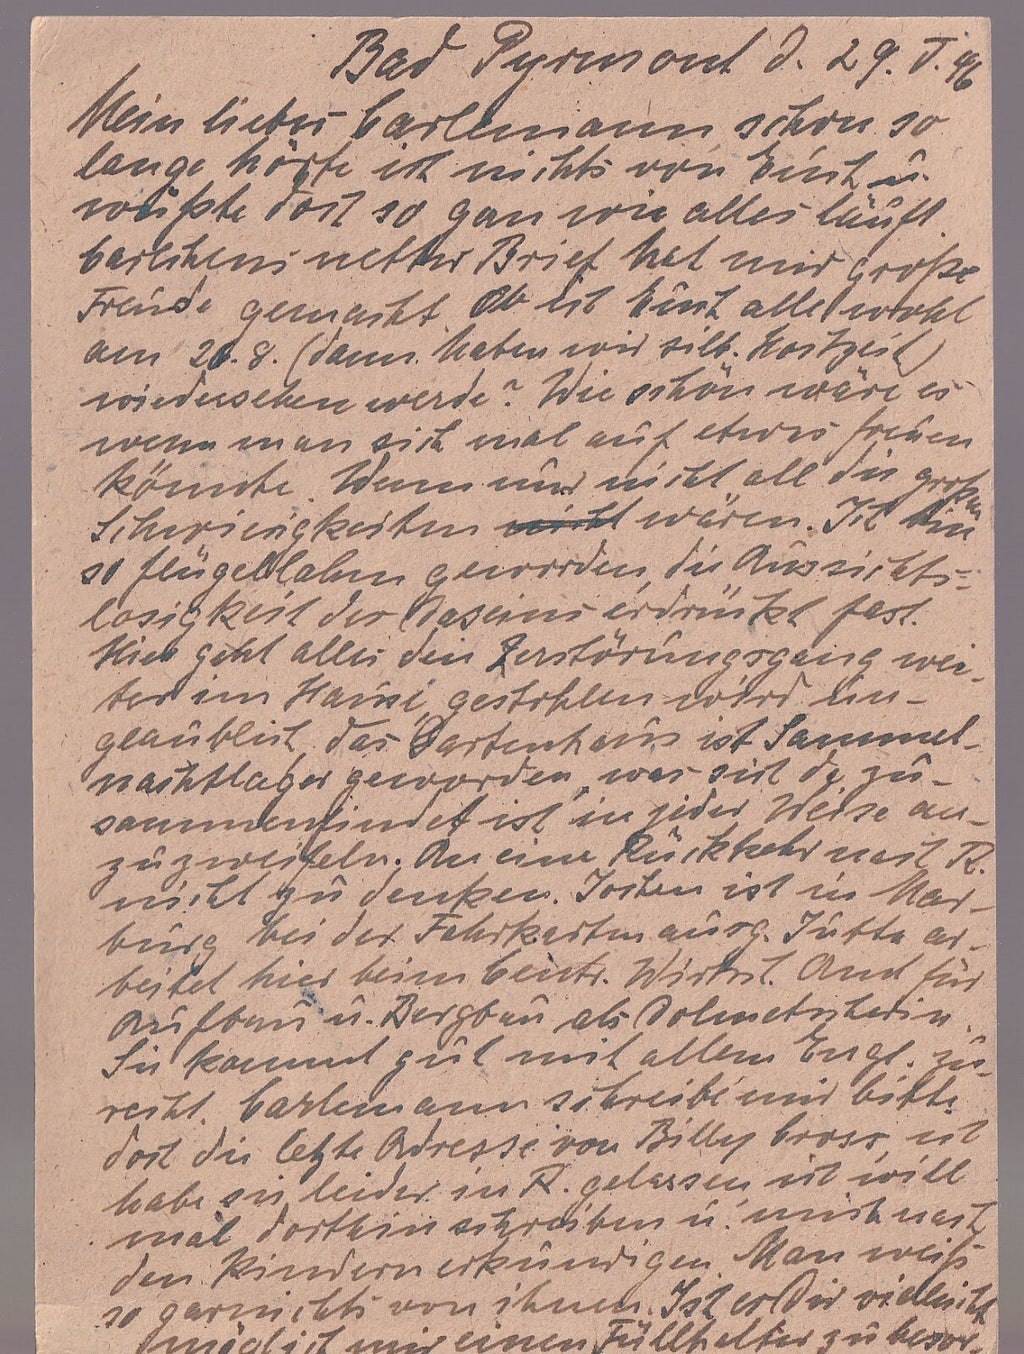 Bad Pyrmont d. 29. I. 46
Mein lieber Carlemann schon so
lange hörte ich nichts von Euch u.
wüßte doch so gern wie alles läuft.
Carlchens netter Brief hat mir große
Freude gemacht. Ob ich Euch alle wohl
am 20.8. (dann haben wir silb. Hochzeit)
wiedersehen werde? Wie schön wäre es
wenn man sich mal auf etwas freuen
könnte. Wenn nur nicht all die großen
Schwierigkeiten nicht wären. Ich bin
so flügellahm geworden, die Aussichts-
losigkeit des Daseins erdrückt fast.
Hier geht alles den Zerstörungsgang wei-
ter im Hause, gestohlen wird un-
glaublich, das Gartenhaus ist Sammel-
nachtlager geworden, was sich da zu-
sammenfindet ist in jeder Weise an-
zuzweifeln. An eine Rückkehr nach R.
nicht zu denken. Jochen ist in Mar-
burg bei der Fahrkartenausg. Jutta ar-
beitet hier beim Centr. Wirtsch. Amt für
Aufbau u. Bergbau als Dolmetscherin.
Sie kommt gut mit allem Engl. zu-
recht. Carlemann schreibe mir bitte
doch die letzte Adresse von Billy Cross, ich
habe sie leider in R. gelassen ich will
mal dorthin schreiben u. mich nach
den Kindern erkundigen. Man weiß
so garnichts von ihnen. Ist er Dir vielleicht
möglich mir einen Füllhalter zu besor-